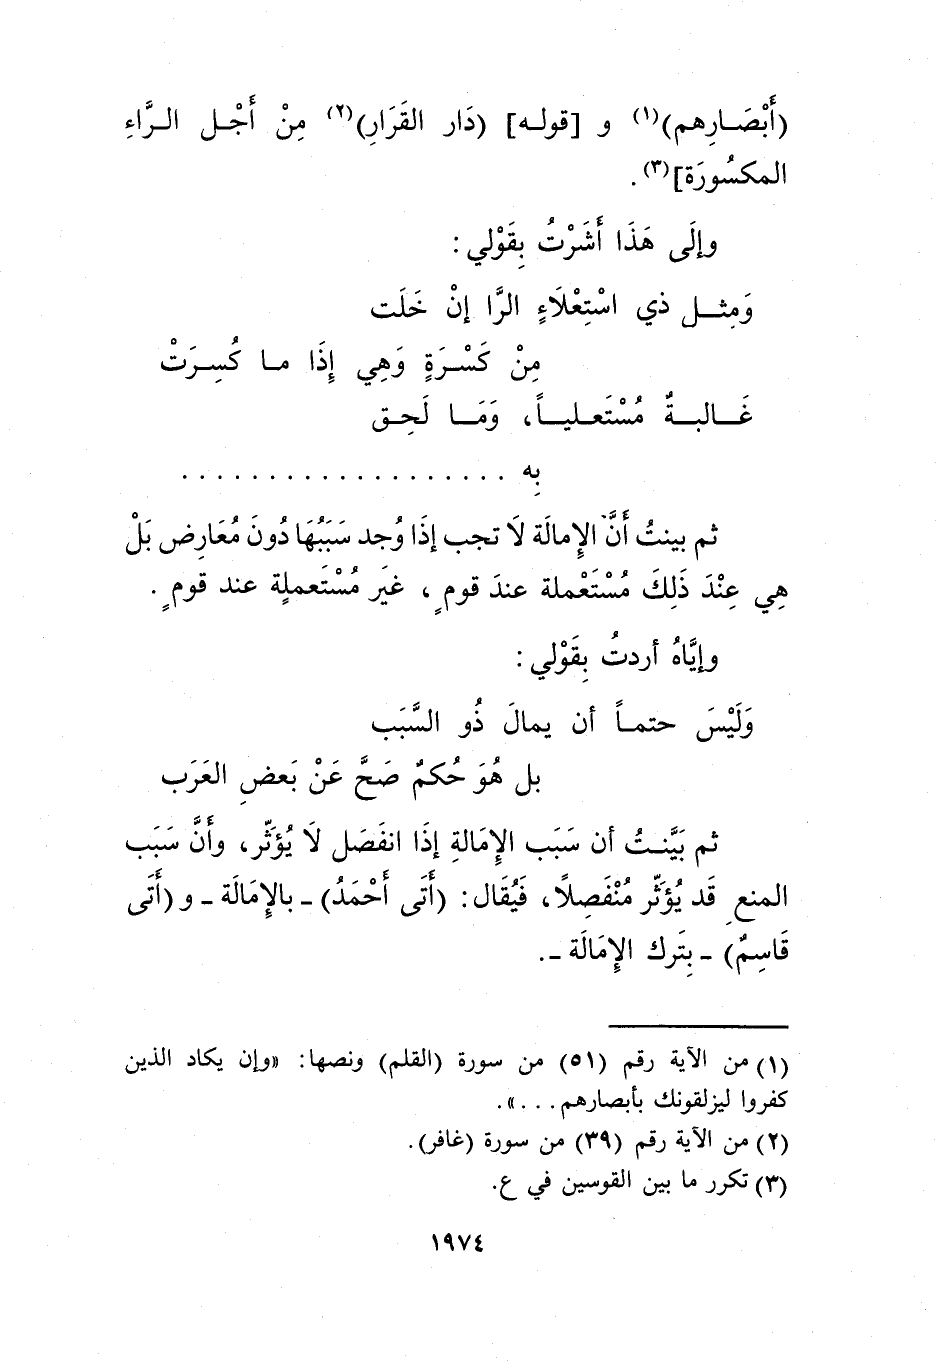 (أَبْصَـارِهم)(١) و [قولـه] (دَار القَرَارِ)(٢) مِنْ أَجْـل الـرَّاءِ
المكسُورَة](٣).
وإلَى هَذَا أَشَرْتُ بِقَوْلي:
وَمِثـل ذي اسْتِعْلَاءٍ الرَّا إنْ خَلَت
مِنْ كَسْـرَةٍ وَهِي إِذَا مـا كُسِـرَتْ
غَـالبـةٌ مُسْتَعـليـاً، وَمَـا لَحِـق
بِه . . . . . . . . . . . . . . . . . . .
ثم بينتُ أَنَّ الإِمالَة لَا تجب إذَا وُجد سَبَبُهَا دُونَ مُعَارِض بَلْ
هِي عِنْدَ ذَلِكَ مُسْتَعْملة عندَ قومٍ، غيَر مُسْتَعملةٍ عند قومٍ.
وإيَّاهُ أردتُ بِقَوْلي:
وَلَيْسَ حتمـاً أن يمالَ ذُو السَّبَب
بل هُوَ حُكمٌ صَحَّ عَنْ بَعضِ العَرَب
ثم بَيَّنـتُ أن سَبَب الإِمَالةِ إذَا انفَصَل لَا يُؤثّر، وأَنَّ سَبَب
المنعِ قَد يُؤثّر مُنْفَصِلاً، فَيُقَال: (أَتَى أَحْمَدُ) ـ بالإِمَالَة ـ و (أَتَى
قَاسِمٌ) ـ بِتَرك الإِمَالَة ـ.
(١) من الآية رقم (٥١) من سورة (القلم) ونصها: «وإن يكاد الذين
كفروا ليزلقونك بأبصارهم...».
(٢) من الآية رقم (٣٩) من سورة (غافر).
(٣) تكرر ما بين القوسين في ع.
١٩٧٤